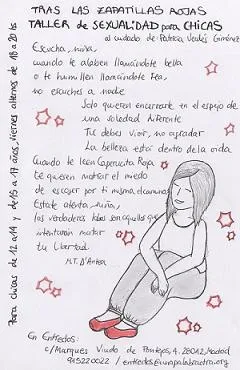 TRAS LAS ZAPATILLAS ROJAS
TALLER de SEXUALIDAD para CHICAS
al cuidado de: Patricia Verdés Giménez
Escucha, niña,
cuando te alaben llamándote bella
o te humillen llamándote fea,
no escuches a nadie
Solo quieren encerrarte en el espejo de
una soledad diferente
Tú debes vivir, no agradar
La belleza está dentro de la vida
Cuando te leen Caperucita Roja
te quieren matar el miedo
de escoger por ti misma el camino
Estate atenta, niña,
los verdaderos lobos son aquellos que
intentarán matar
tu libertad
M.T. D'Antea
Para chicas de 12 a 14 y de 15 a 17 años, viernes alternos de 18 a 20hs
En Entredós:
c/Marqués Viudo de Pontejos, 4. 28012, Madrid
915220022 / entredos@unapalabraotra.org